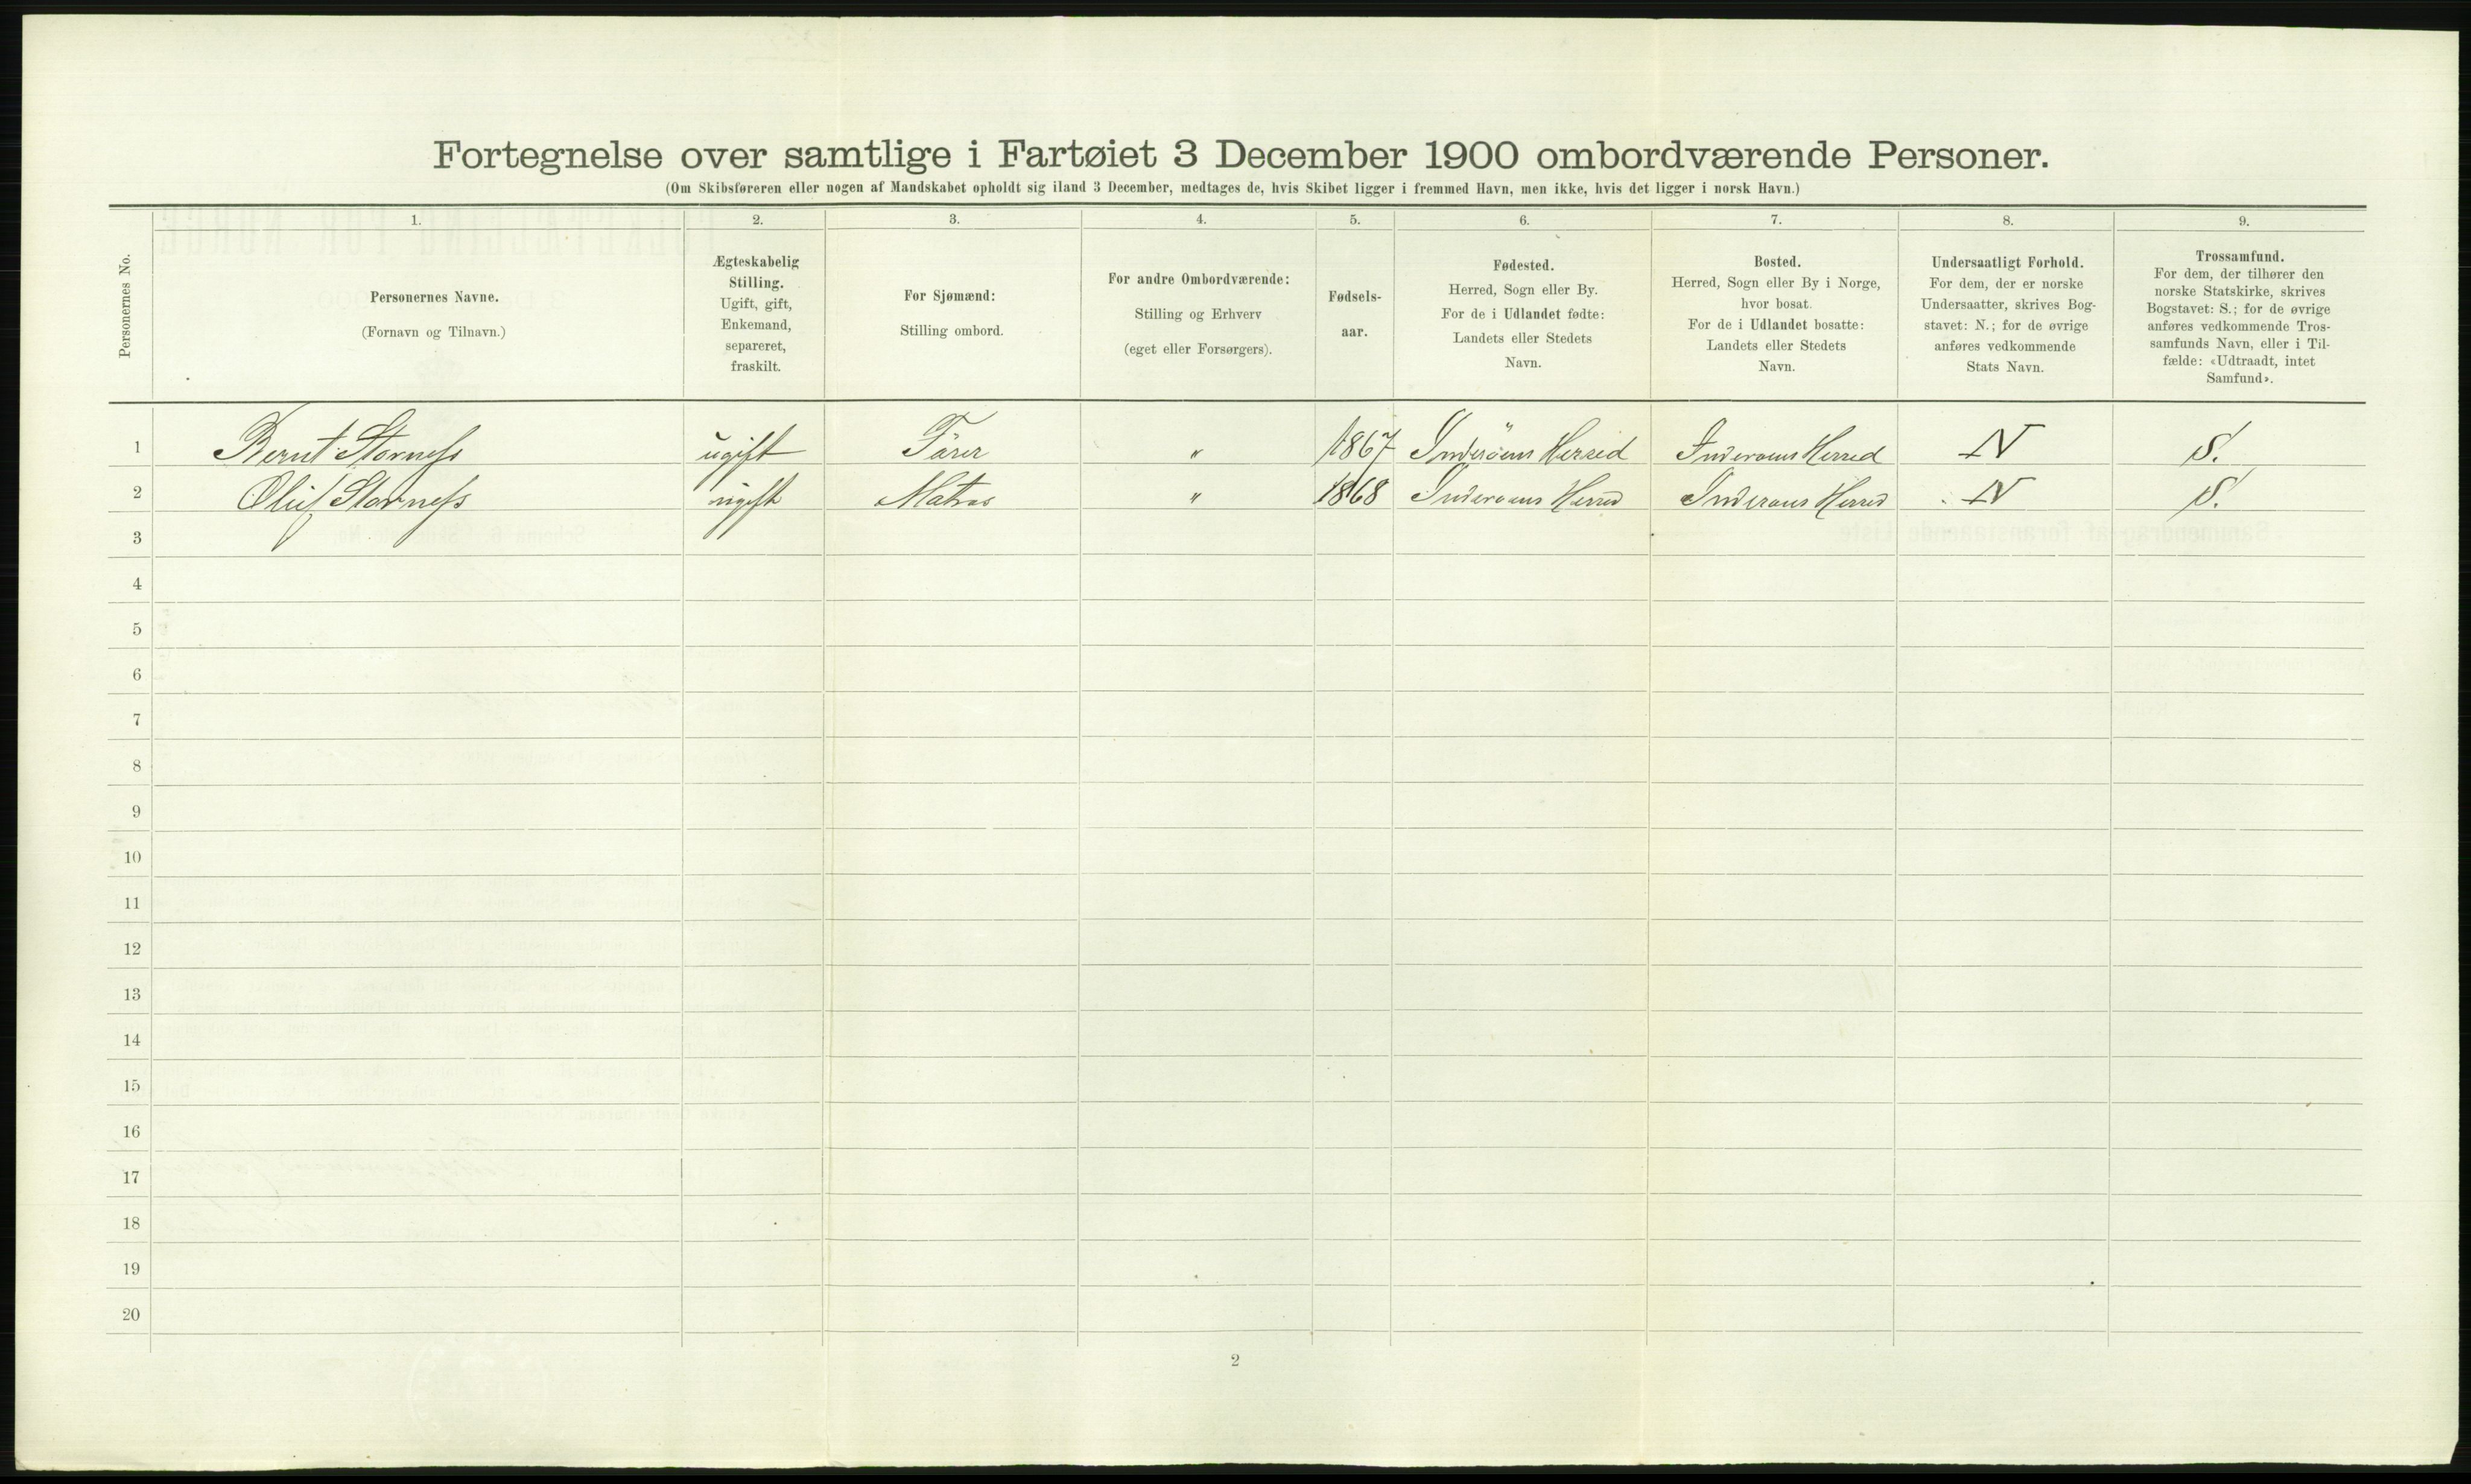 Fortegnelse over samtlige i Fartøiet 3 December 1900 ombordværende Personer.
(Om Skibsføreren eller nogen af Mandskabet opholdt sig iland 3 December, medtages de, hvis Skibet ligger i fremmed Havn, men ikke, hvis det ligger i norsk Havn.)
Personernes No.
1.
Personernes Navne.
(Fornavn og Tilnavn.)
2.
Ægteskabelig
Stilling.
Ugift, gift,
Enkemand,
separeret,
fraskilt.
3.
For Sjømænd:
Stilling ombord.
4.
For andre Ombordværende:
Stilling og Erhverv
(eget eller Forsørgers).
5.
Fødsels-
aar.
6.
Fødested.
Herred, Sogn eller By.
For de i Udlandet fødte:
Landets eller Stedets
Navn.
7.
Bosted.
Herred, Sogn eller By i Norge,
hvor bosat.
For de i Udlandet bosatte:
Landets eller Stedets
Navn.
8.
Undersaatligt Forhold.
For dem, der er norske
Undersaatter, skrives Bog-
stavet: N.; for de øvrige
anføres vedkommende
Stats Navn.
9.
Trossamfund.
For dem, der tilhører den
norske Statskirke, skrives
Bogstavet: S.; for de øvrige
anføres vedkommende Tros-
samfunds Navn, eller i Til-
fælde: «Udtraadt, intet
Samfund».
1 Bernt Storness ugift Förer " 1867 Inderöens Herred Inderoens Herred N S.
2 Oluf Storness ugift Matros " 1868 Inderoens Herred Inderoens Herred N S.
3
4
5
6
7
8
9
10
11
12
13
14
15
16
17
18
19
20
2